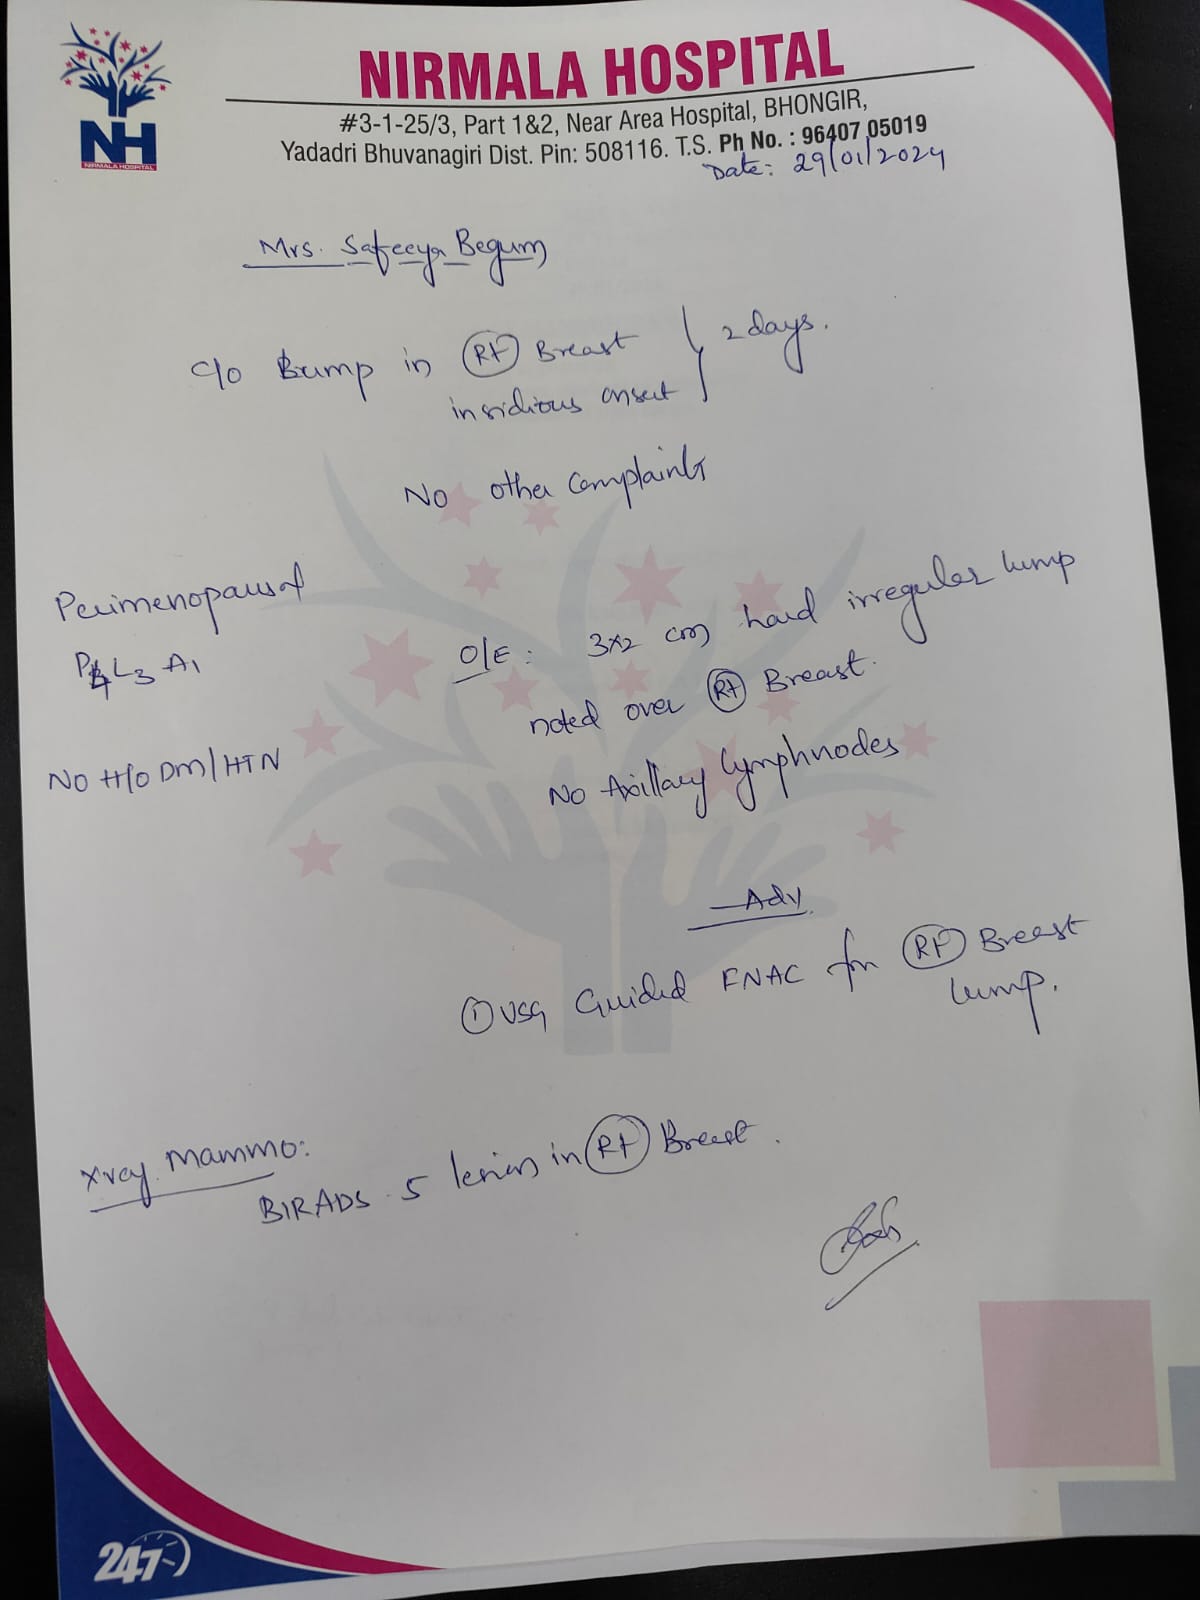 NIRMALA HOSPITAL
#3-1-25/3, Part 1&2, Near Area Hospital, BHONGIR,
Yadadri Bhuvanagiri Dist. Pin: 508116. T.S. Ph No. : 96407 05019
NH
NIRMALA HOSPITAL
Date: 29/01/2024
Mrs. Safeeya Begum
c/o Bump in Rt Breast
insidious onset
2 days.
No other complaints
Perimenopausal
P4 L3 A1
No H/o DM/HTN
O/E : 3x2 cm hard irregular lump
noted over Rt Breast.
No Axillary lymphnodes
Adv
① USG Guided FNAC for Rt Breast
lump.
Xray Mammo:
BIRADS 5 lesion in Rt Breast.
247